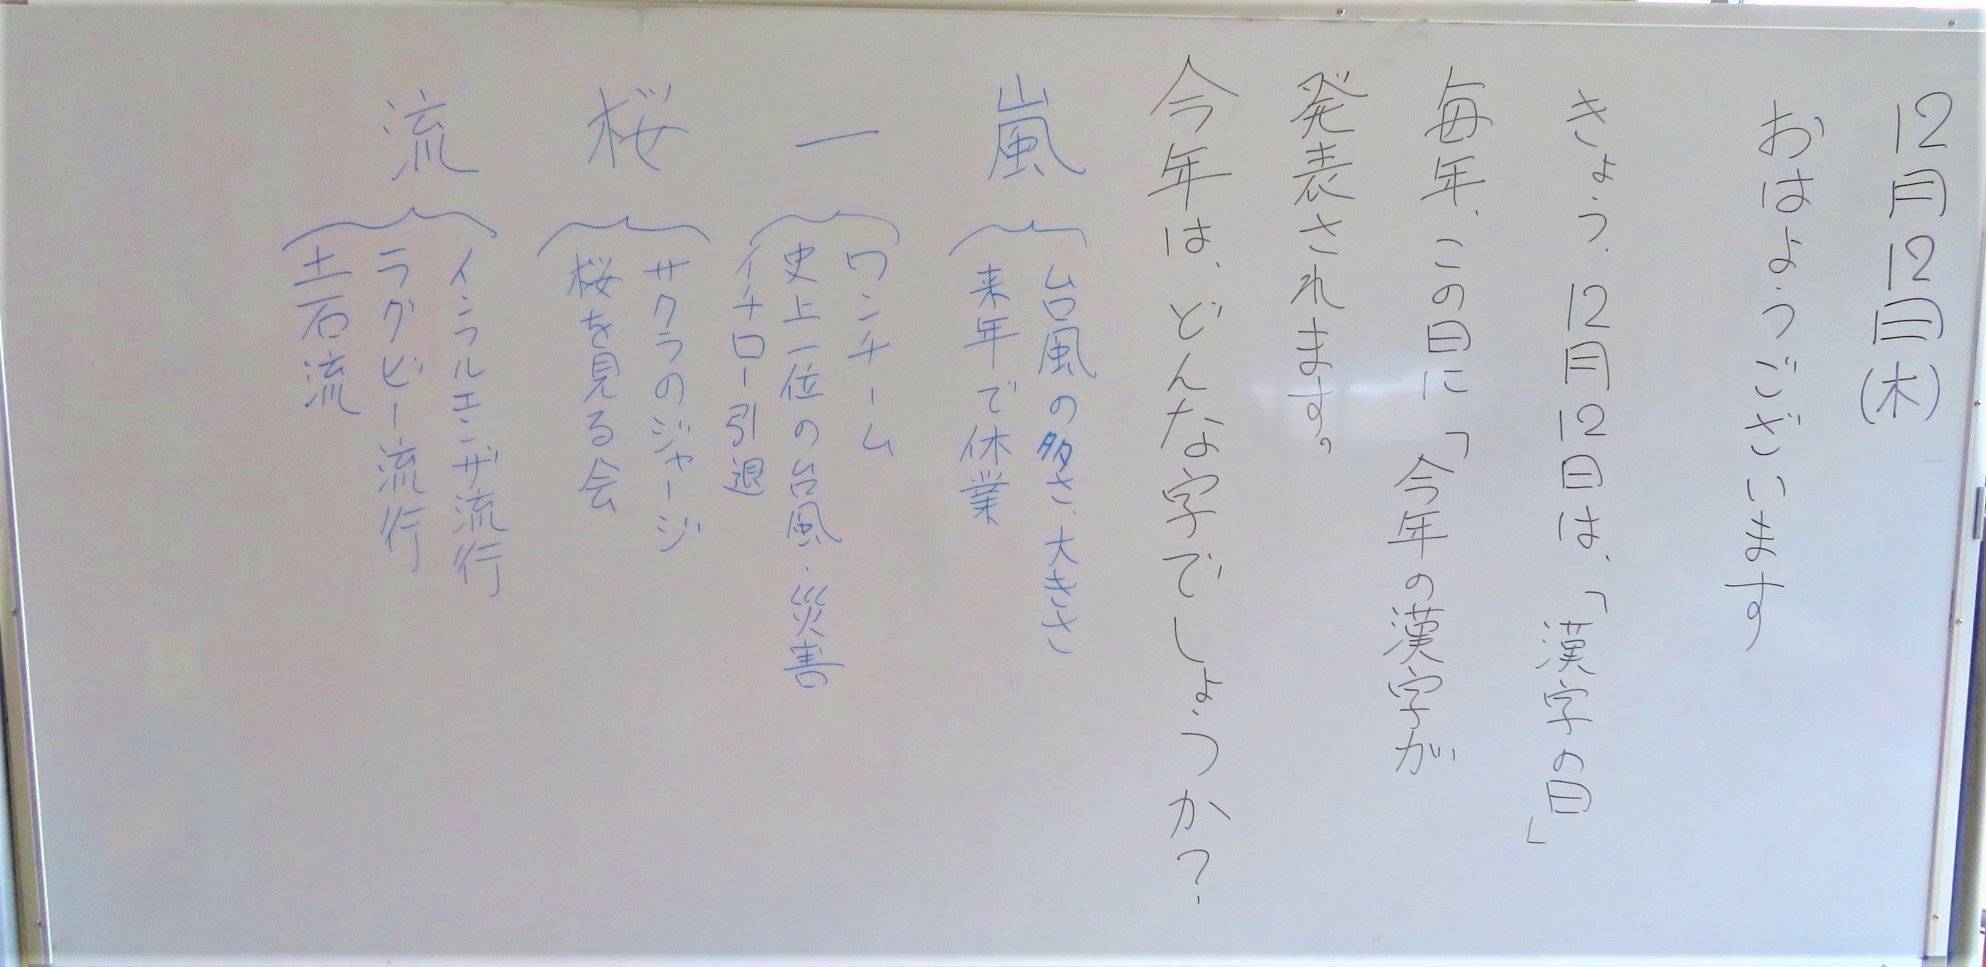 12月12日(木)
おはようございます
きょう、12月12日は、「漢字の日」
毎年、この日に「今年の漢字が
発表されます。
今年は、どんな字でしょうか?
嵐
台風の多さ、大きさ
来年で休業
一
ワンチーム
史上一位の台風・災害
イチロー引退
桜
サクラのジャージ
桜を見る会
流
インフルエンザ流行
ラグビー流行
土石流